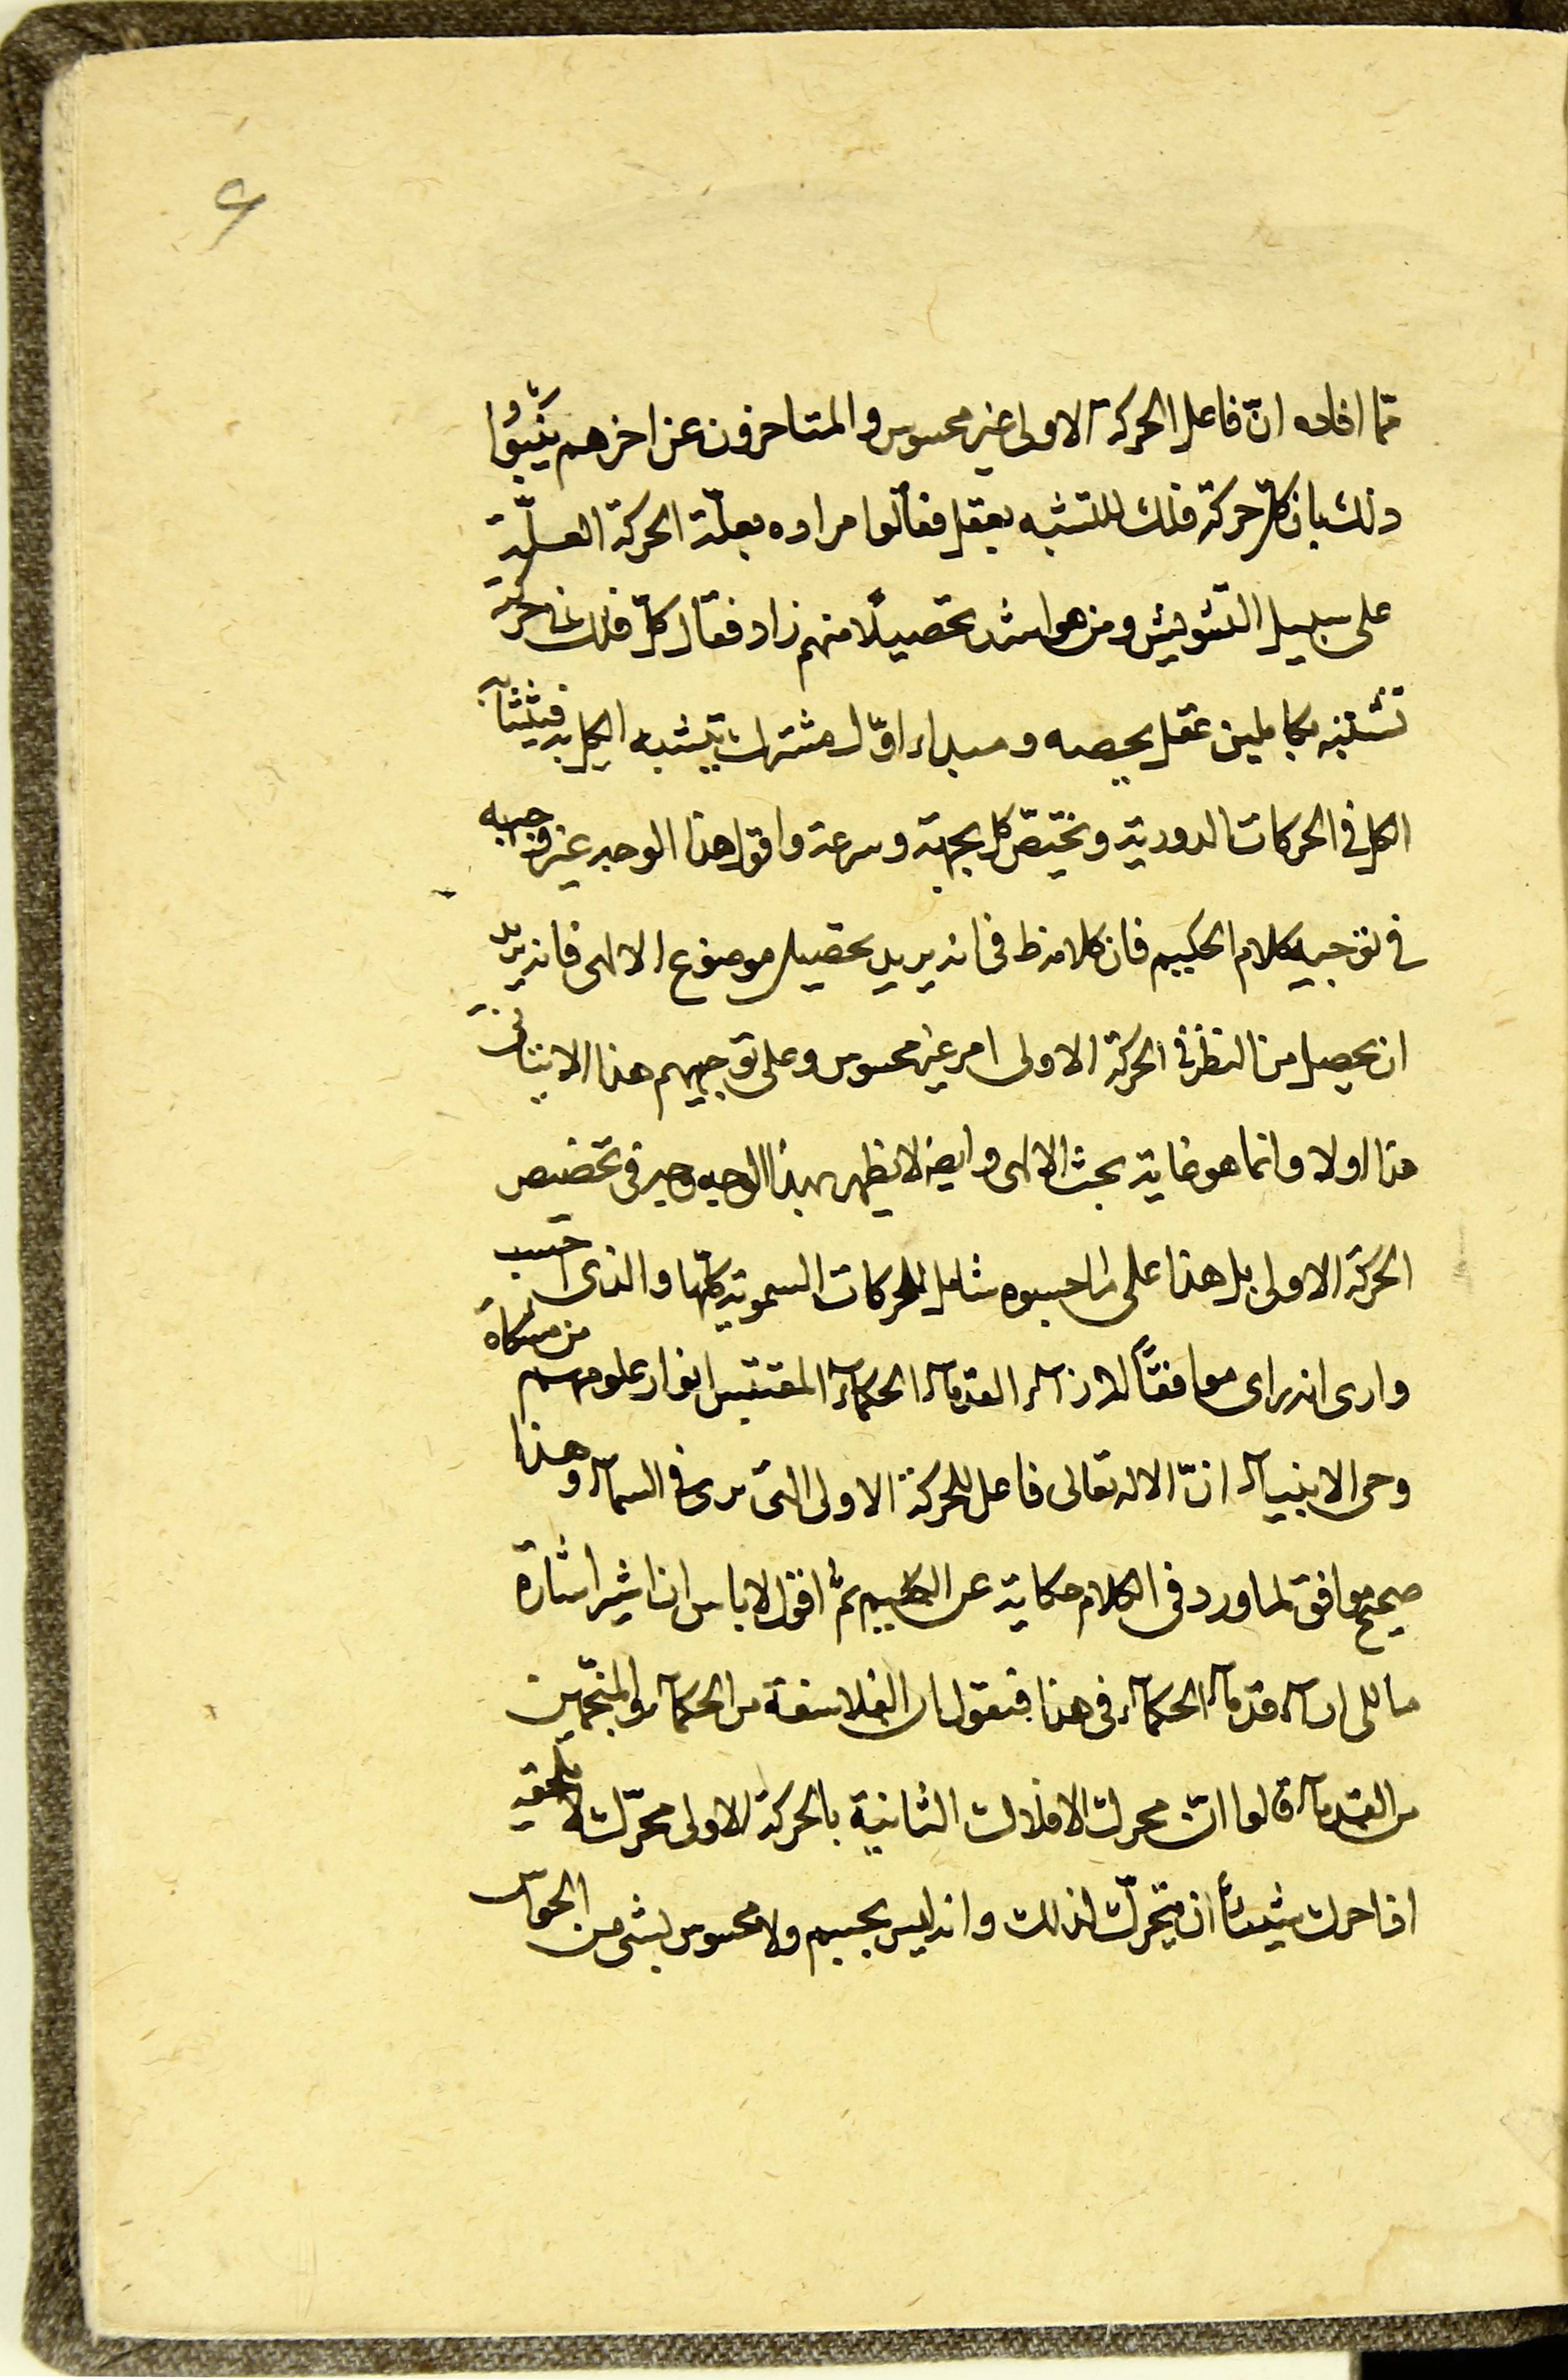 ۶
مما افاده انّ فاعل الحركة الاولى غير محسوس و المتاخرون عن اخرهم بيّنوا
ذلك بان كلّ حركة فلك للتشبه بعقل فقالوا مراده بعلّة الحركة العلّة
على سبيل التشويش ومن هو اشد تحصيلاً منهم زاد فقال كلّ فلك فى حركته
تشبه بكاملين عقل يخصه و مبداء اوّل مشترك يتشبه الكل به فيتشابه
الكل فى الحركات الدورية و يختصّ كل بجهة و سرعة و اقول هذا الوجه غير وجيه
فى توجيه كلام الحكيم فان كلامه ظ فى انه يريد تحصيل موضوع الالهى فانه يريد
ان يحصل من النظر فى الحركة الاولى امر غير محسوس و على توجيههم هذا لا يتاتى
هذا اولا و انما هو غاية بحث الالهى و ايضا لا يظهر بهذا الوجه وجه فى تخصيص
الحركة الاولى بل هذا على ما حسبوه شامل للحركات السموية كلّها و الذى احسب
و ارى انه راى موافقاً لاراء القدماء الحكماء المقتبس انوار علومهم من مشكاة
وحى الانبياء انّ الاله تعالى فاعل للحركة الاولى التى نرى فى السماء و هذا
صحيح موافق لما ورد فى الكلام حكاية عن الحكيم ثمّ اقول لا باس ان اشير اشارة
ما الى اراء قدماء الحكماء فى هذا فنقول ان الفلاسفة من الحكماء و المنجّمين
من القدماء قالوا انّ محرك الافلاك الثانية بالحركة الاولى محرّك لا يلحقه
اذا حرك شيئاً ان يتحرّك لذلك و انه ليس بجسم ولا محسوس بشى من الحواس